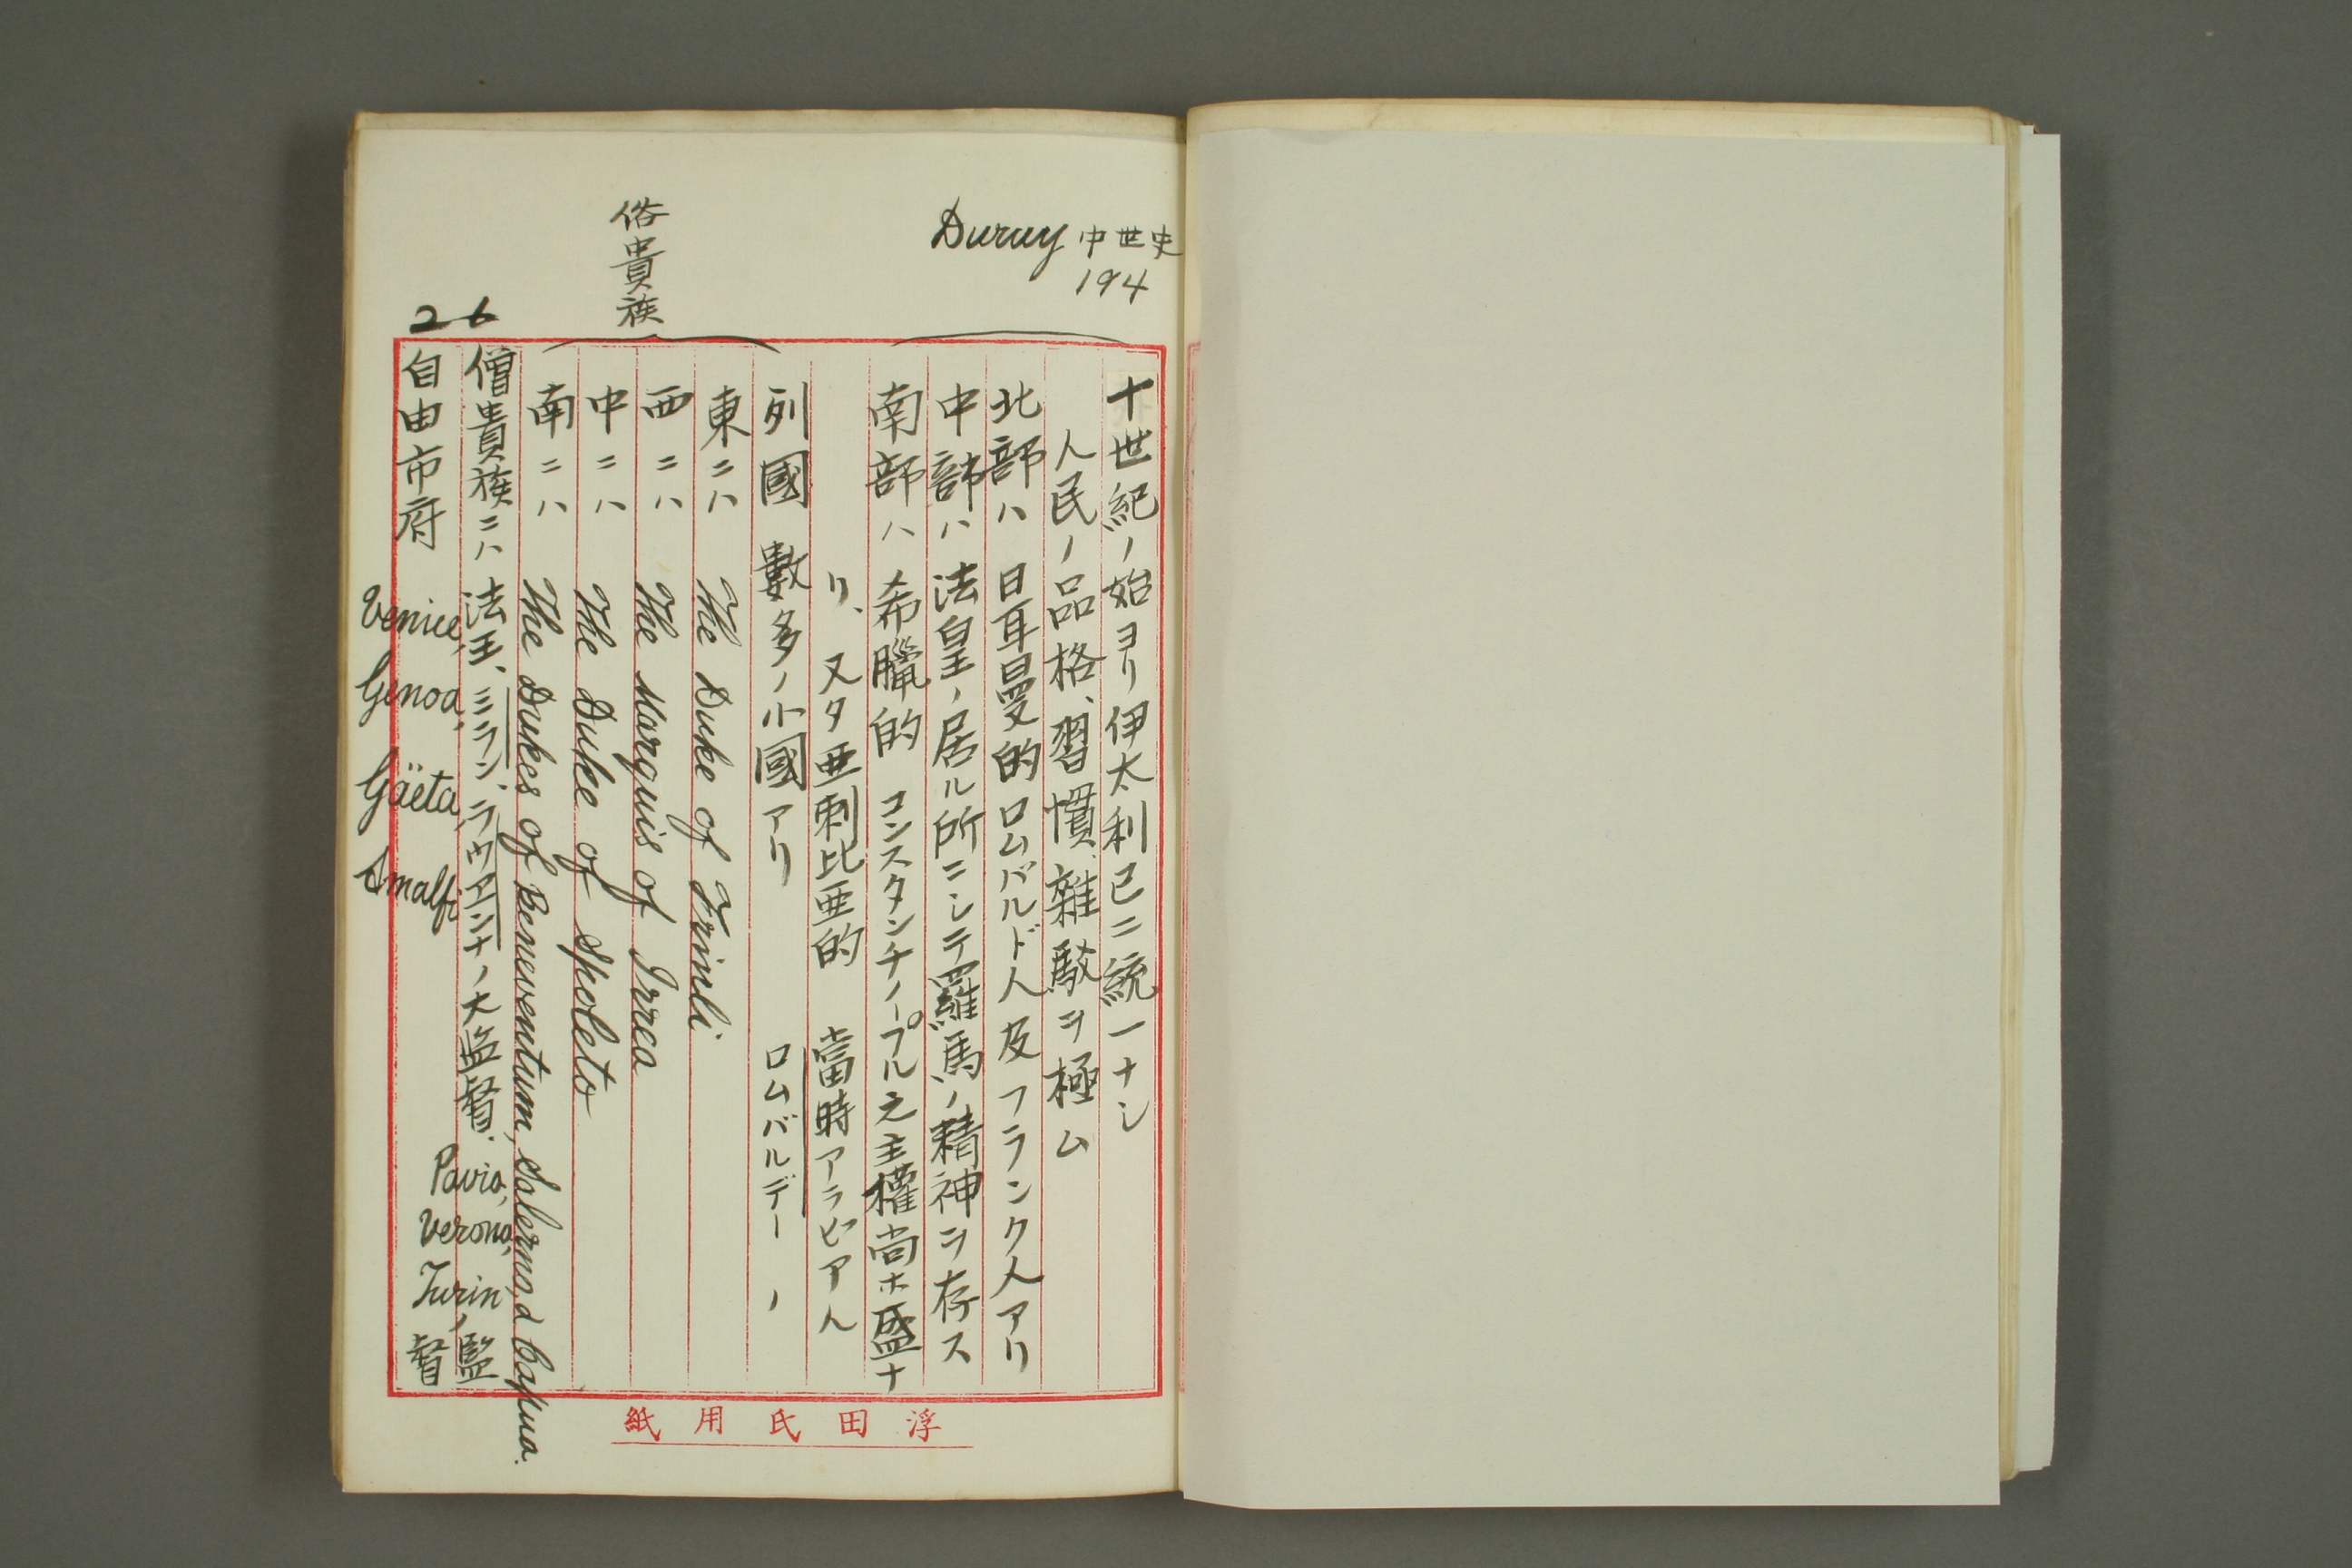 Duruy 中世史
194
十世紀ノ始ヨリ伊太利已ニ統一ナシ
人民ノ品格、習慣、雜駁ヲ極ム
北部ハ 日耳曼的ロムバルド人及フランク人アリ
中部ハ 法皇ノ居ル所ニシテ羅馬ノ精神ヲ存ス
南部ハ 希臘的 コンスタンチノープル之主權尚ホ盛ナ
リ、又タ亜刺比亜的 當時アラビアん
列國 數多ノ小國アリ ロムバルデーノ
俗貴族
東ニハ The Duke of Frinli.
西ニハ The Marquis of Irrea
中ニハ The Duke of Spoleto
南ニハ The Dukes of Beneventum, Salerno, d Capua.
僧貴族ニハ 法王、ミラン、ラヴアンナノ大監督. Pavia, Verona, Turin ノ監督
26
自由市府 Venice, Genoa, Gäeta, Amalfi
浮田氏用紙